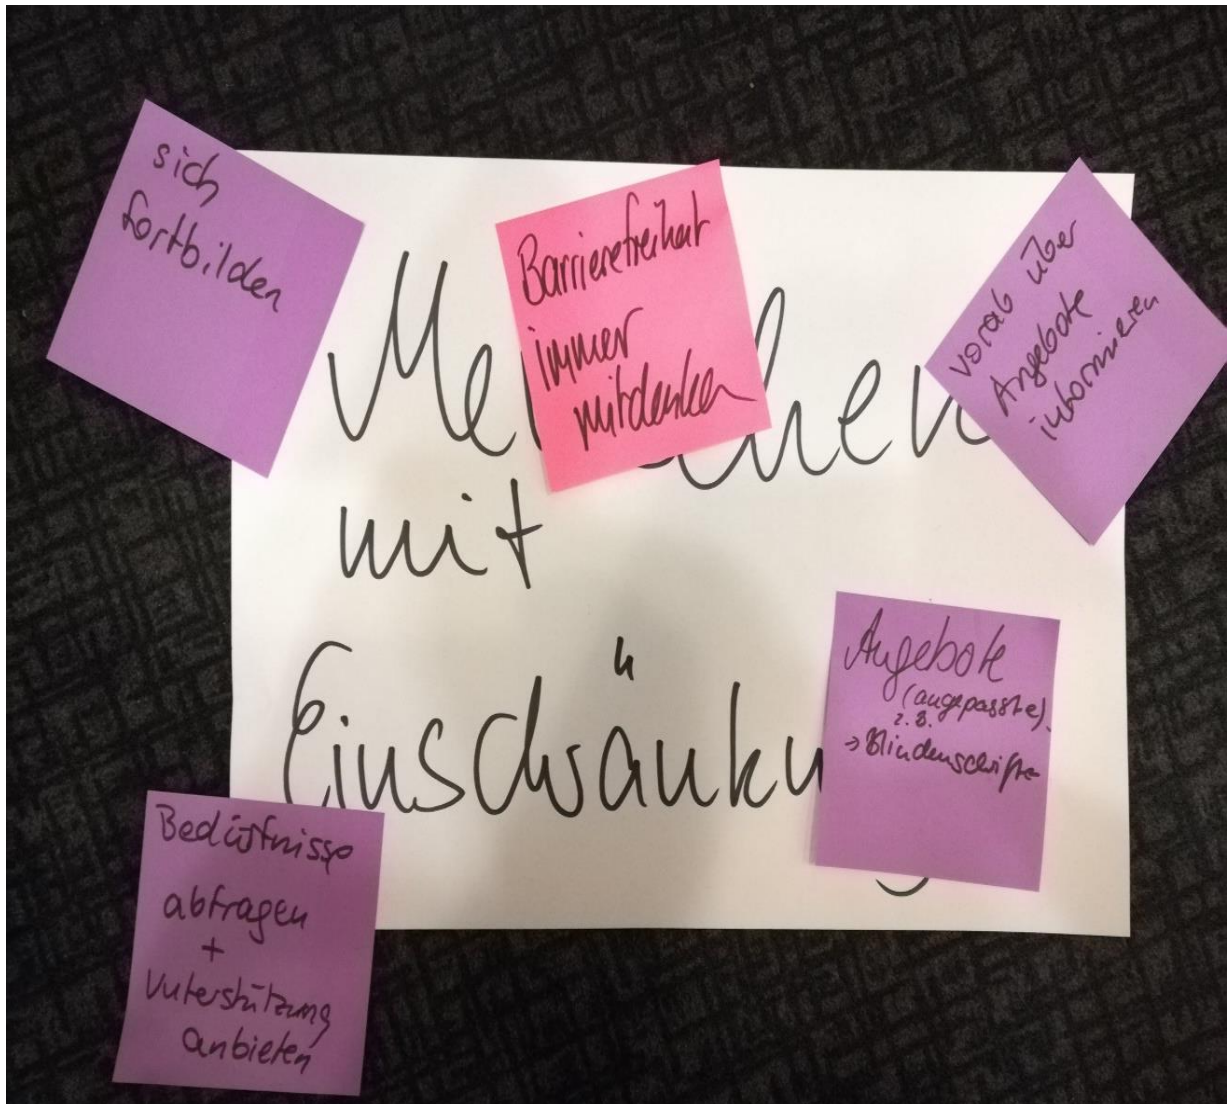 sich
fortbilden
Barrierefreiheit
immer
mitdenken
vorab über
Angebote
informieren
mit
Angebote
(angepasste).
z.B.
→ Blindenschrift
Bedürfnisse
abfragen
+
Unterstützung
anbieten